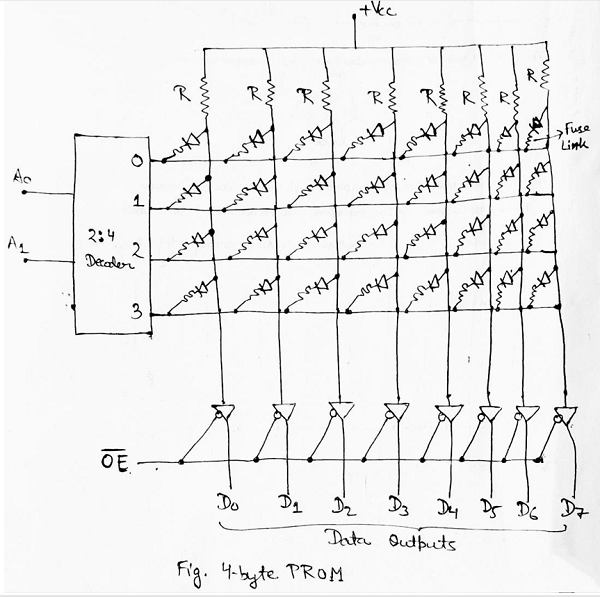 +Vcc
R R R R R R R R
Fuse
Link
0
A0
1
2:4
Decoder
A1
2
3
OE
D0 D1 D2 D3 D4 D5 D6 D7
Data Outputs
Fig. 4-byte PROM